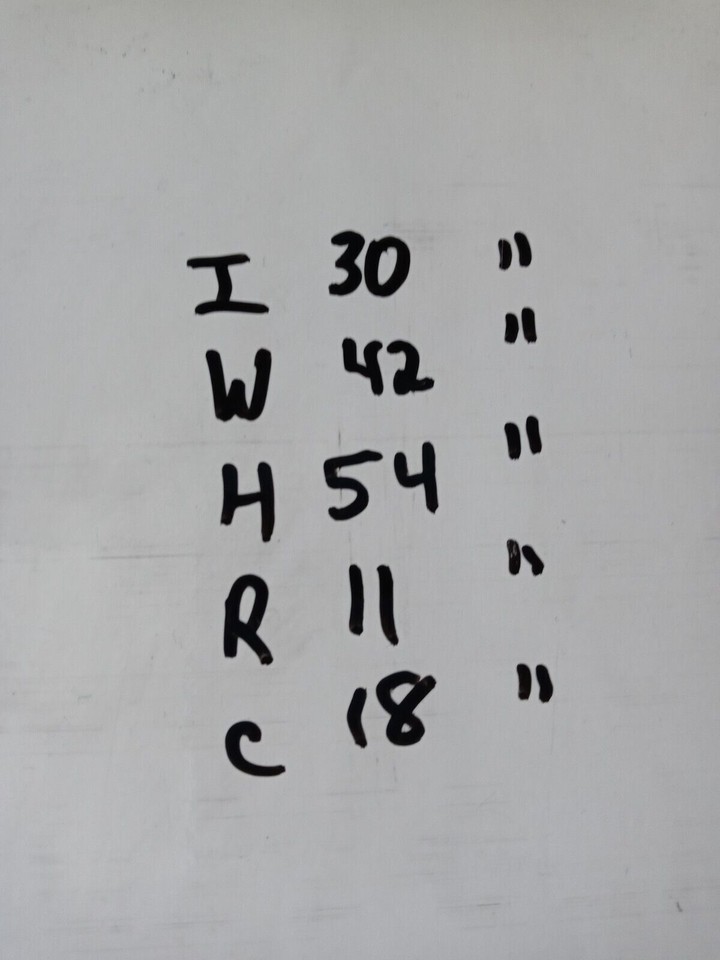 I 30 "
W 42 "
H 54 "
R 11 "
C 18 "